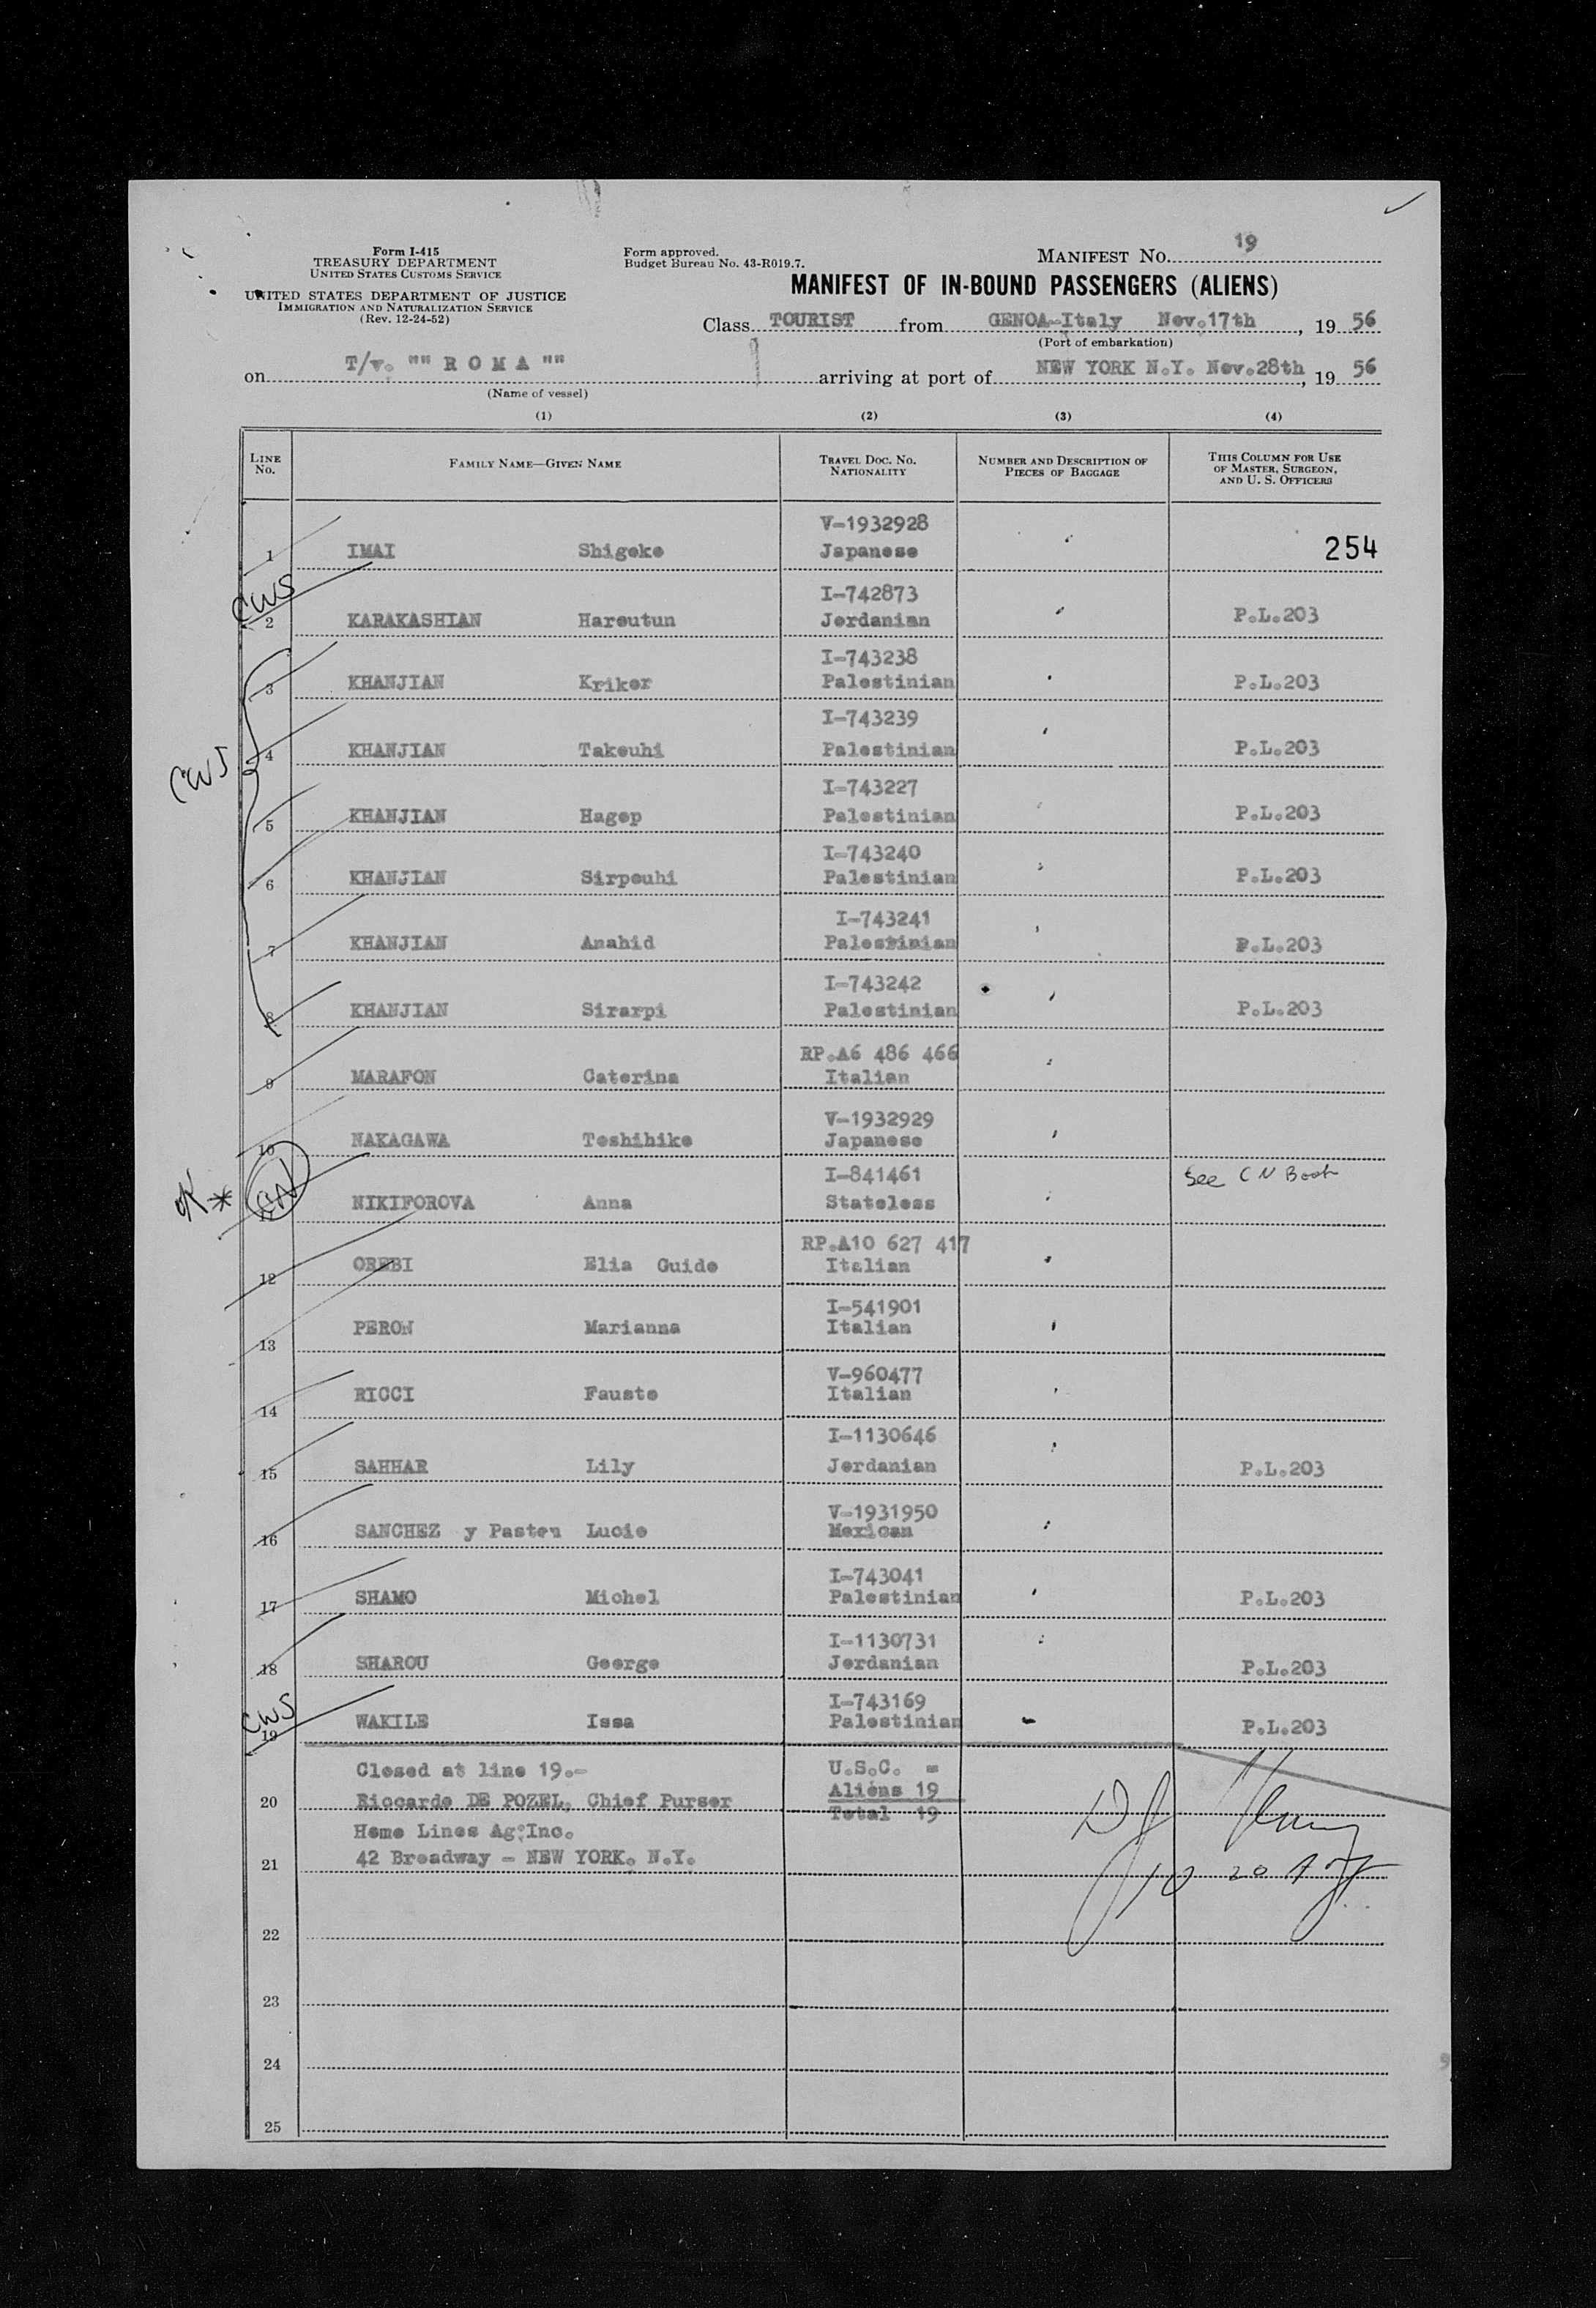 Form I-415
TREASURY DEPARTMENT
UNITED STATES CUSTOMS SERVICE
UNITED STATES DEPARTMENT OF JUSTICE
IMMIGRATION AND NATURALIZATION SERVICE
(Rev. 12-24-52)
Form approved.
Budget Bureau No. 43-R019.7.
MANIFEST NO. 19
MANIFEST OF IN-BOUND PASSENGERS (ALIENS)
Class TOURIST from GENOA-Italy Nov.17th, 19 56
(Port of embarkation)
on T/v. "" R O M A "" arriving at port of NEW YORK N.Y. Nov.28th, 19 56
(Name of vessel)
(1) (2) (3) (4)
LINE NO. FAMILY NAME—GIVEN NAME TRAVEL DOC. NO. NATIONALITY NUMBER AND DESCRIPTION OF PIECES OF BAGGAGE THIS COLUMN FOR USE OF MASTER, SURGEON, AND U. S. OFFICERS
V-1932928
1 IMAI Shigeko Japanese 254
CWS
I-742873
2 KARAKASHIAN Haroutun Jordanian P.L.203
I-743238
3 KHANJIAN Krikor Palestinian P.L.203
I-743239
4 KHANJIAN Takouhi Palestinian P.L.203
CWS
I-743227
5 KHANJIAN Hagop Palestinian P.L.203
I-743240
6 KHANJIAN Sirpouhi Palestinian P.L.203
I-743241
7 KHANJIAN Anahid Palestinian P.L.203
I-743242
8 KHANJIAN Sirarpi Palestinian P.L.203
RP.A6 486 466
9 MARAFON Caterina Italian
V-1932929
10 NAKAGAWA Toshihiko Japanese
I-841461 See C N Book
OK * CN
11 NIKIFOROVA Anna Stateless
RP.A10 627 417
12 OREBI Elia Guido Italian
I-541901
13 PERON Marianna Italian
V-960477
14 RICCI Fausto Italian
I-1130646
15 SAHHAR Lily Jordanian P.L.203
V-1931950
16 SANCHEZ y Pasten Lucio Mexican
I-743041
17 SHAMO Michel Palestinian P.L.203
I-1130731
18 SHAROU George Jordanian P.L.203
CWS
I-743169
19 WAKILE Issa Palestinian P.L.203
Closed at line 19.- U.S.C. =
Aliens 19
20 Riccardo DE POZEL, Chief Purser Total 19
Home Lines Ag.Inc.
21 42 Broadway - NEW YORK. N.Y.
10 20 A
22
23
24
25